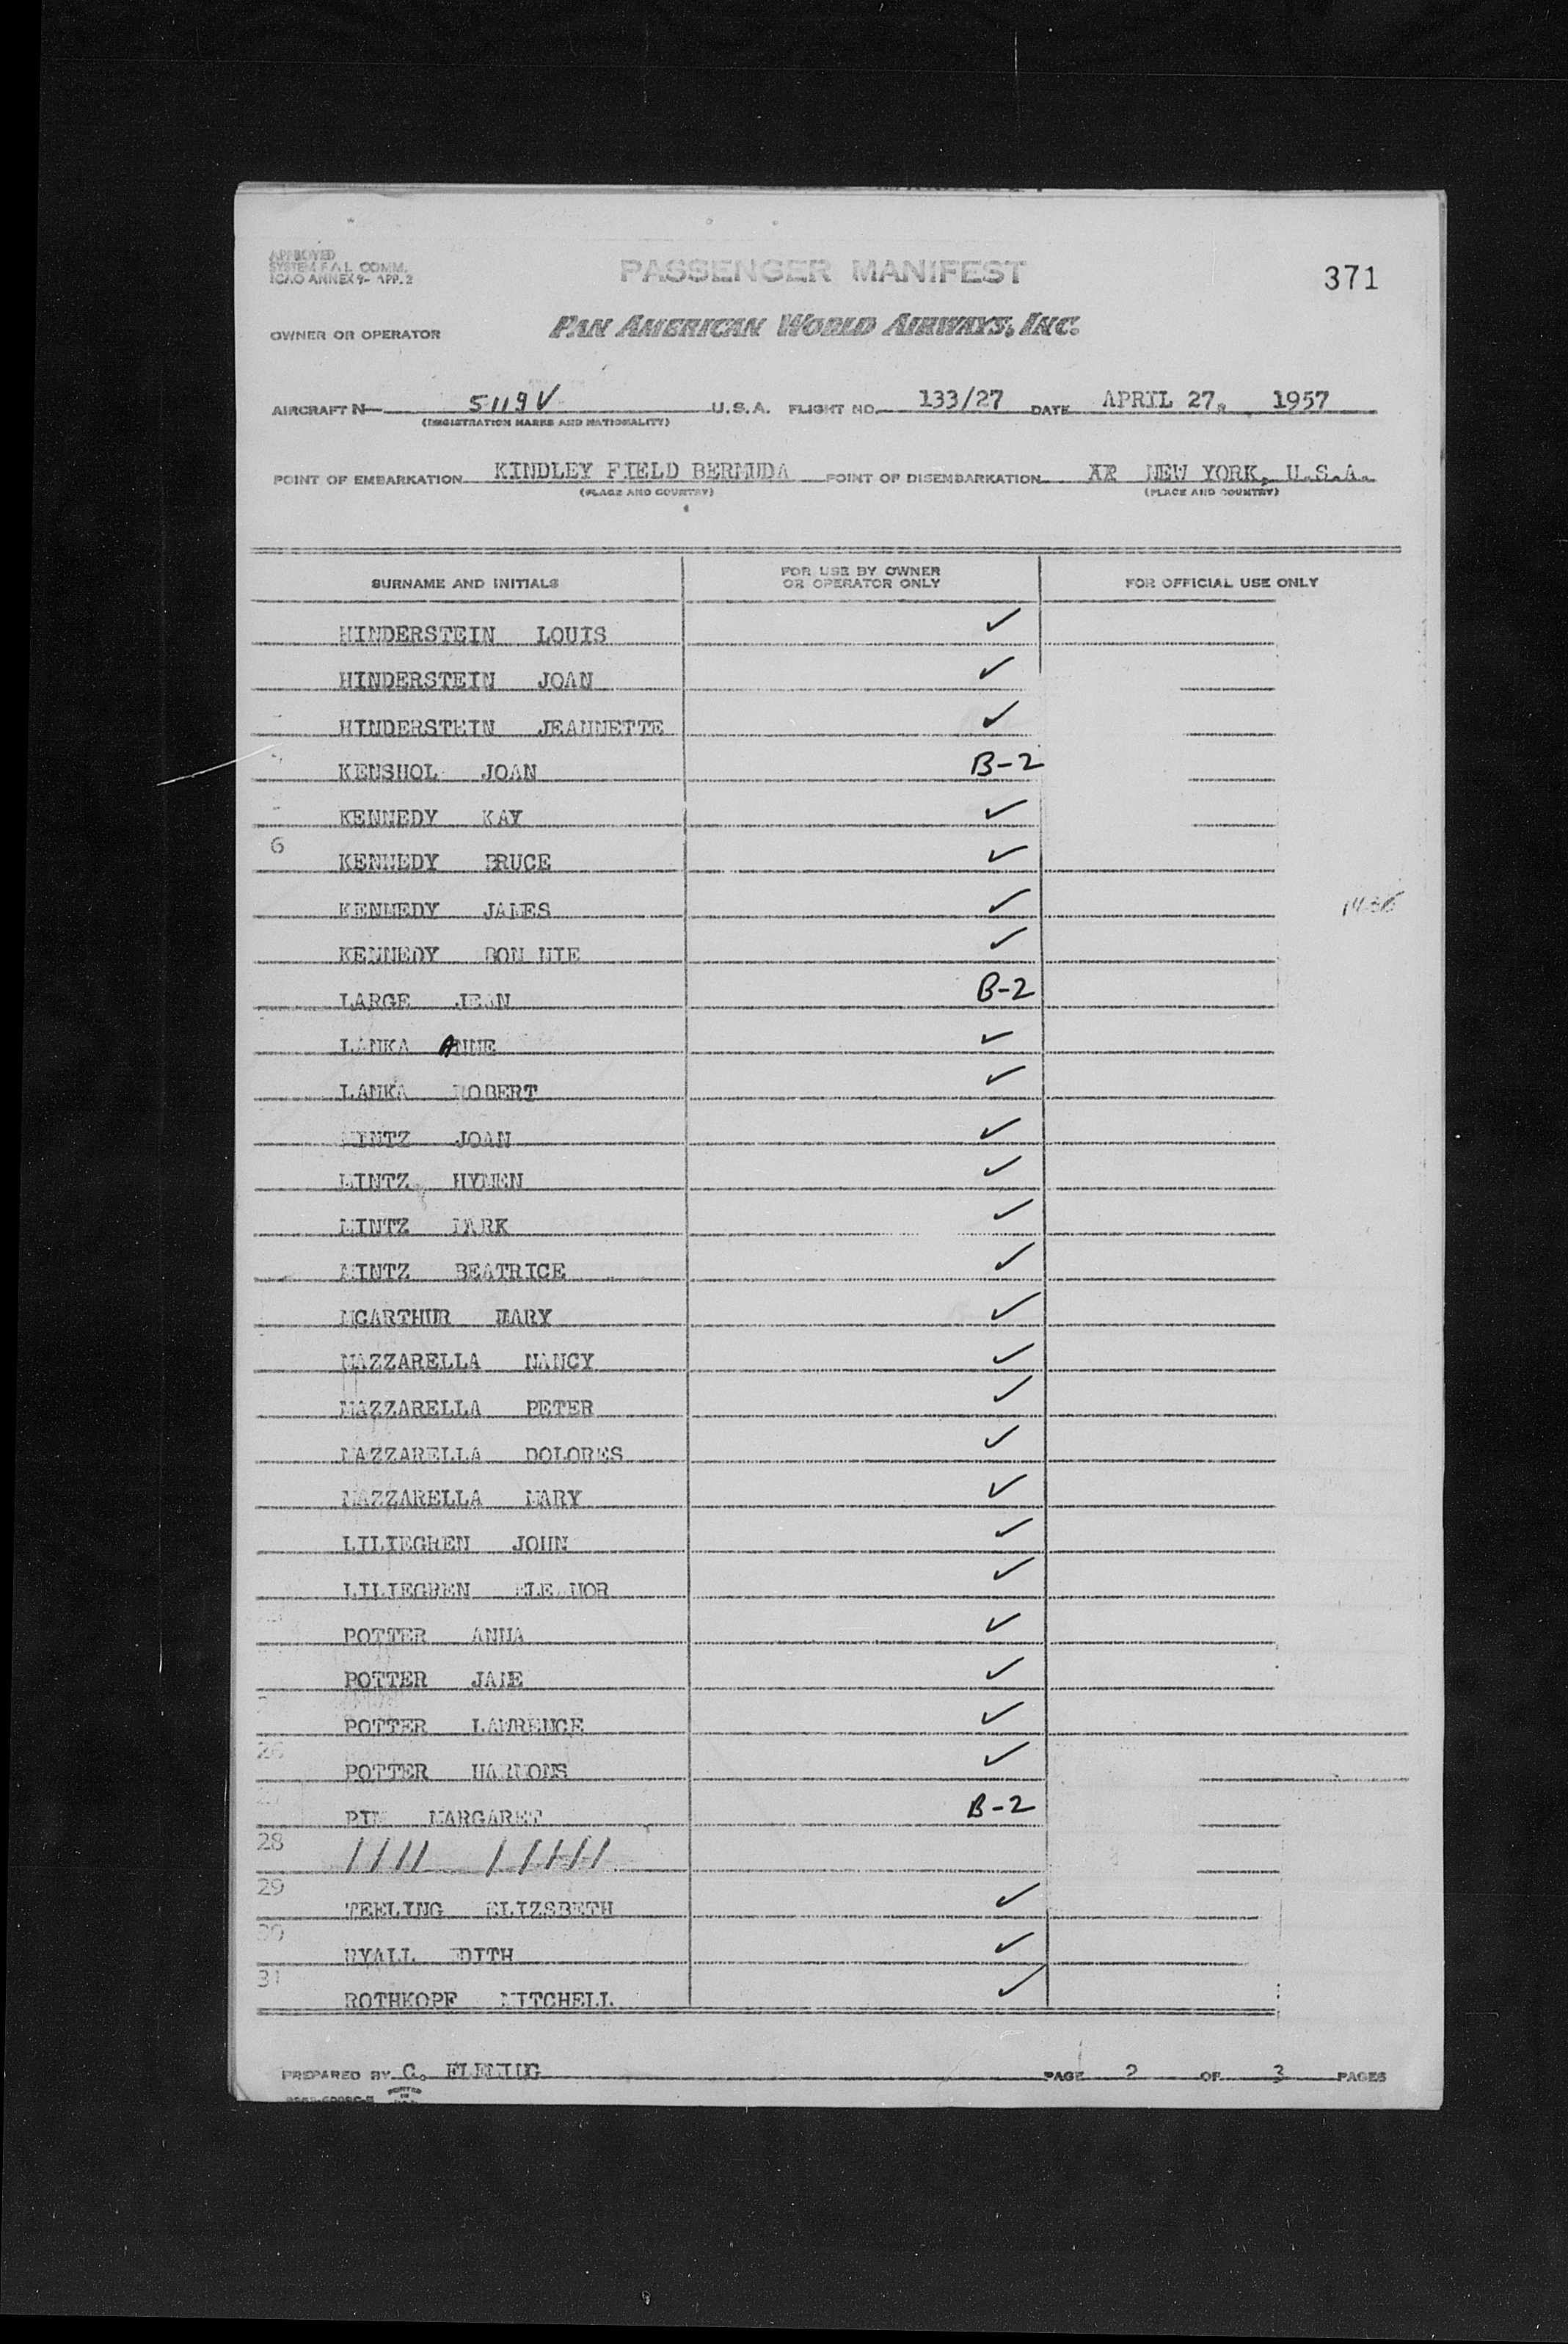 APPROVED
SYSTEM F.A.L. COMM.
ICAO ANNEX 9- APP. 2
PASSENGER MANIFEST
371
OWNER OR OPERATOR PAN AMERICAN WORLD AIRWAYS, INC.
AIRCRAFT N— 5119V U.S.A. FLIGHT NO. 133/27 DATE APRIL 27, 1957
(REGISTRATION MARKS AND NATIONALITY)
POINT OF EMBARKATION KINDLEY FIELD BERMUDA POINT OF DISEMBARKATION NEW YORK, U.S.A.
(PLACE AND COUNTRY) (PLACE AND COUNTRY)
SURNAME AND INITIALS FOR USE BY OWNER OR OPERATOR ONLY FOR OFFICIAL USE ONLY
HINDERSTEIN LOUIS ✓
HINDERSTEIN JOAN ✓
HINDERSTEIN JEANNETTE ✓
KENSHOL JOAN B-2
KENNEDY KAY ✓
6 KENNEDY BRUCE ✓
KENNEDY JAMES ✓
KENNEDY BONNIE ✓
LARGE JEAN B-2
LANKA ANNE ✓
LANKA ROBERT ✓
MINTZ JOAN ✓
MINTZ HYMEN ✓
MINTZ MARK ✓
MINTZ BEATRICE ✓
MCARTHUR MARY ✓
MAZZARELLA NANCY ✓
MAZZARELLA PETER ✓
MAZZARELLA DOLORES ✓
MAZZARELLA MARY ✓
LILIEGREN JOHN ✓
LILIEGREN ELEANOR ✓
POTTER ANNA ✓
POTTER JANE ✓
POTTER LAWRENCE ✓
26 POTTER HARMONS ✓
PIM MARGARET B-2
28 //// /////
29 TEELING ELIZSBETH ✓
30 RYALL EDITH ✓
31 ROTHKOPF MITCHELL ✓
PREPARED BY C. FLEMING PAGE 2 OF 3 PAGES
PRINTED IN